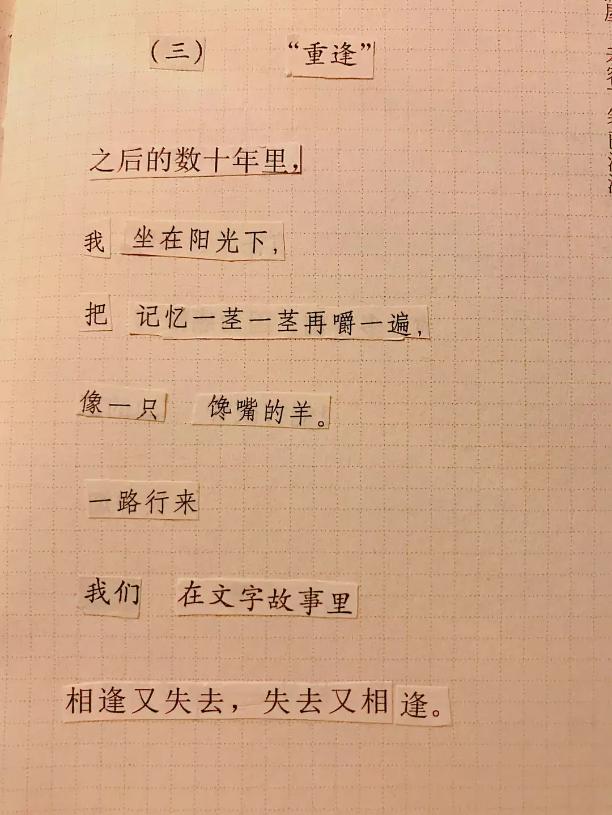 （三） “重逢”
之后的数十年里，
我 坐在阳光下，
把 记忆一茎一茎再嚼一遍，
像一只 馋嘴的羊。
一路行来
我们 在文字故事里
相逢又失去，失去又相逢。